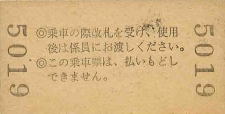 5019
◎乗車の際改札を受け、使用
後は係員にお渡しください。
◎この乗車票は、払いもどし
できません。
5019